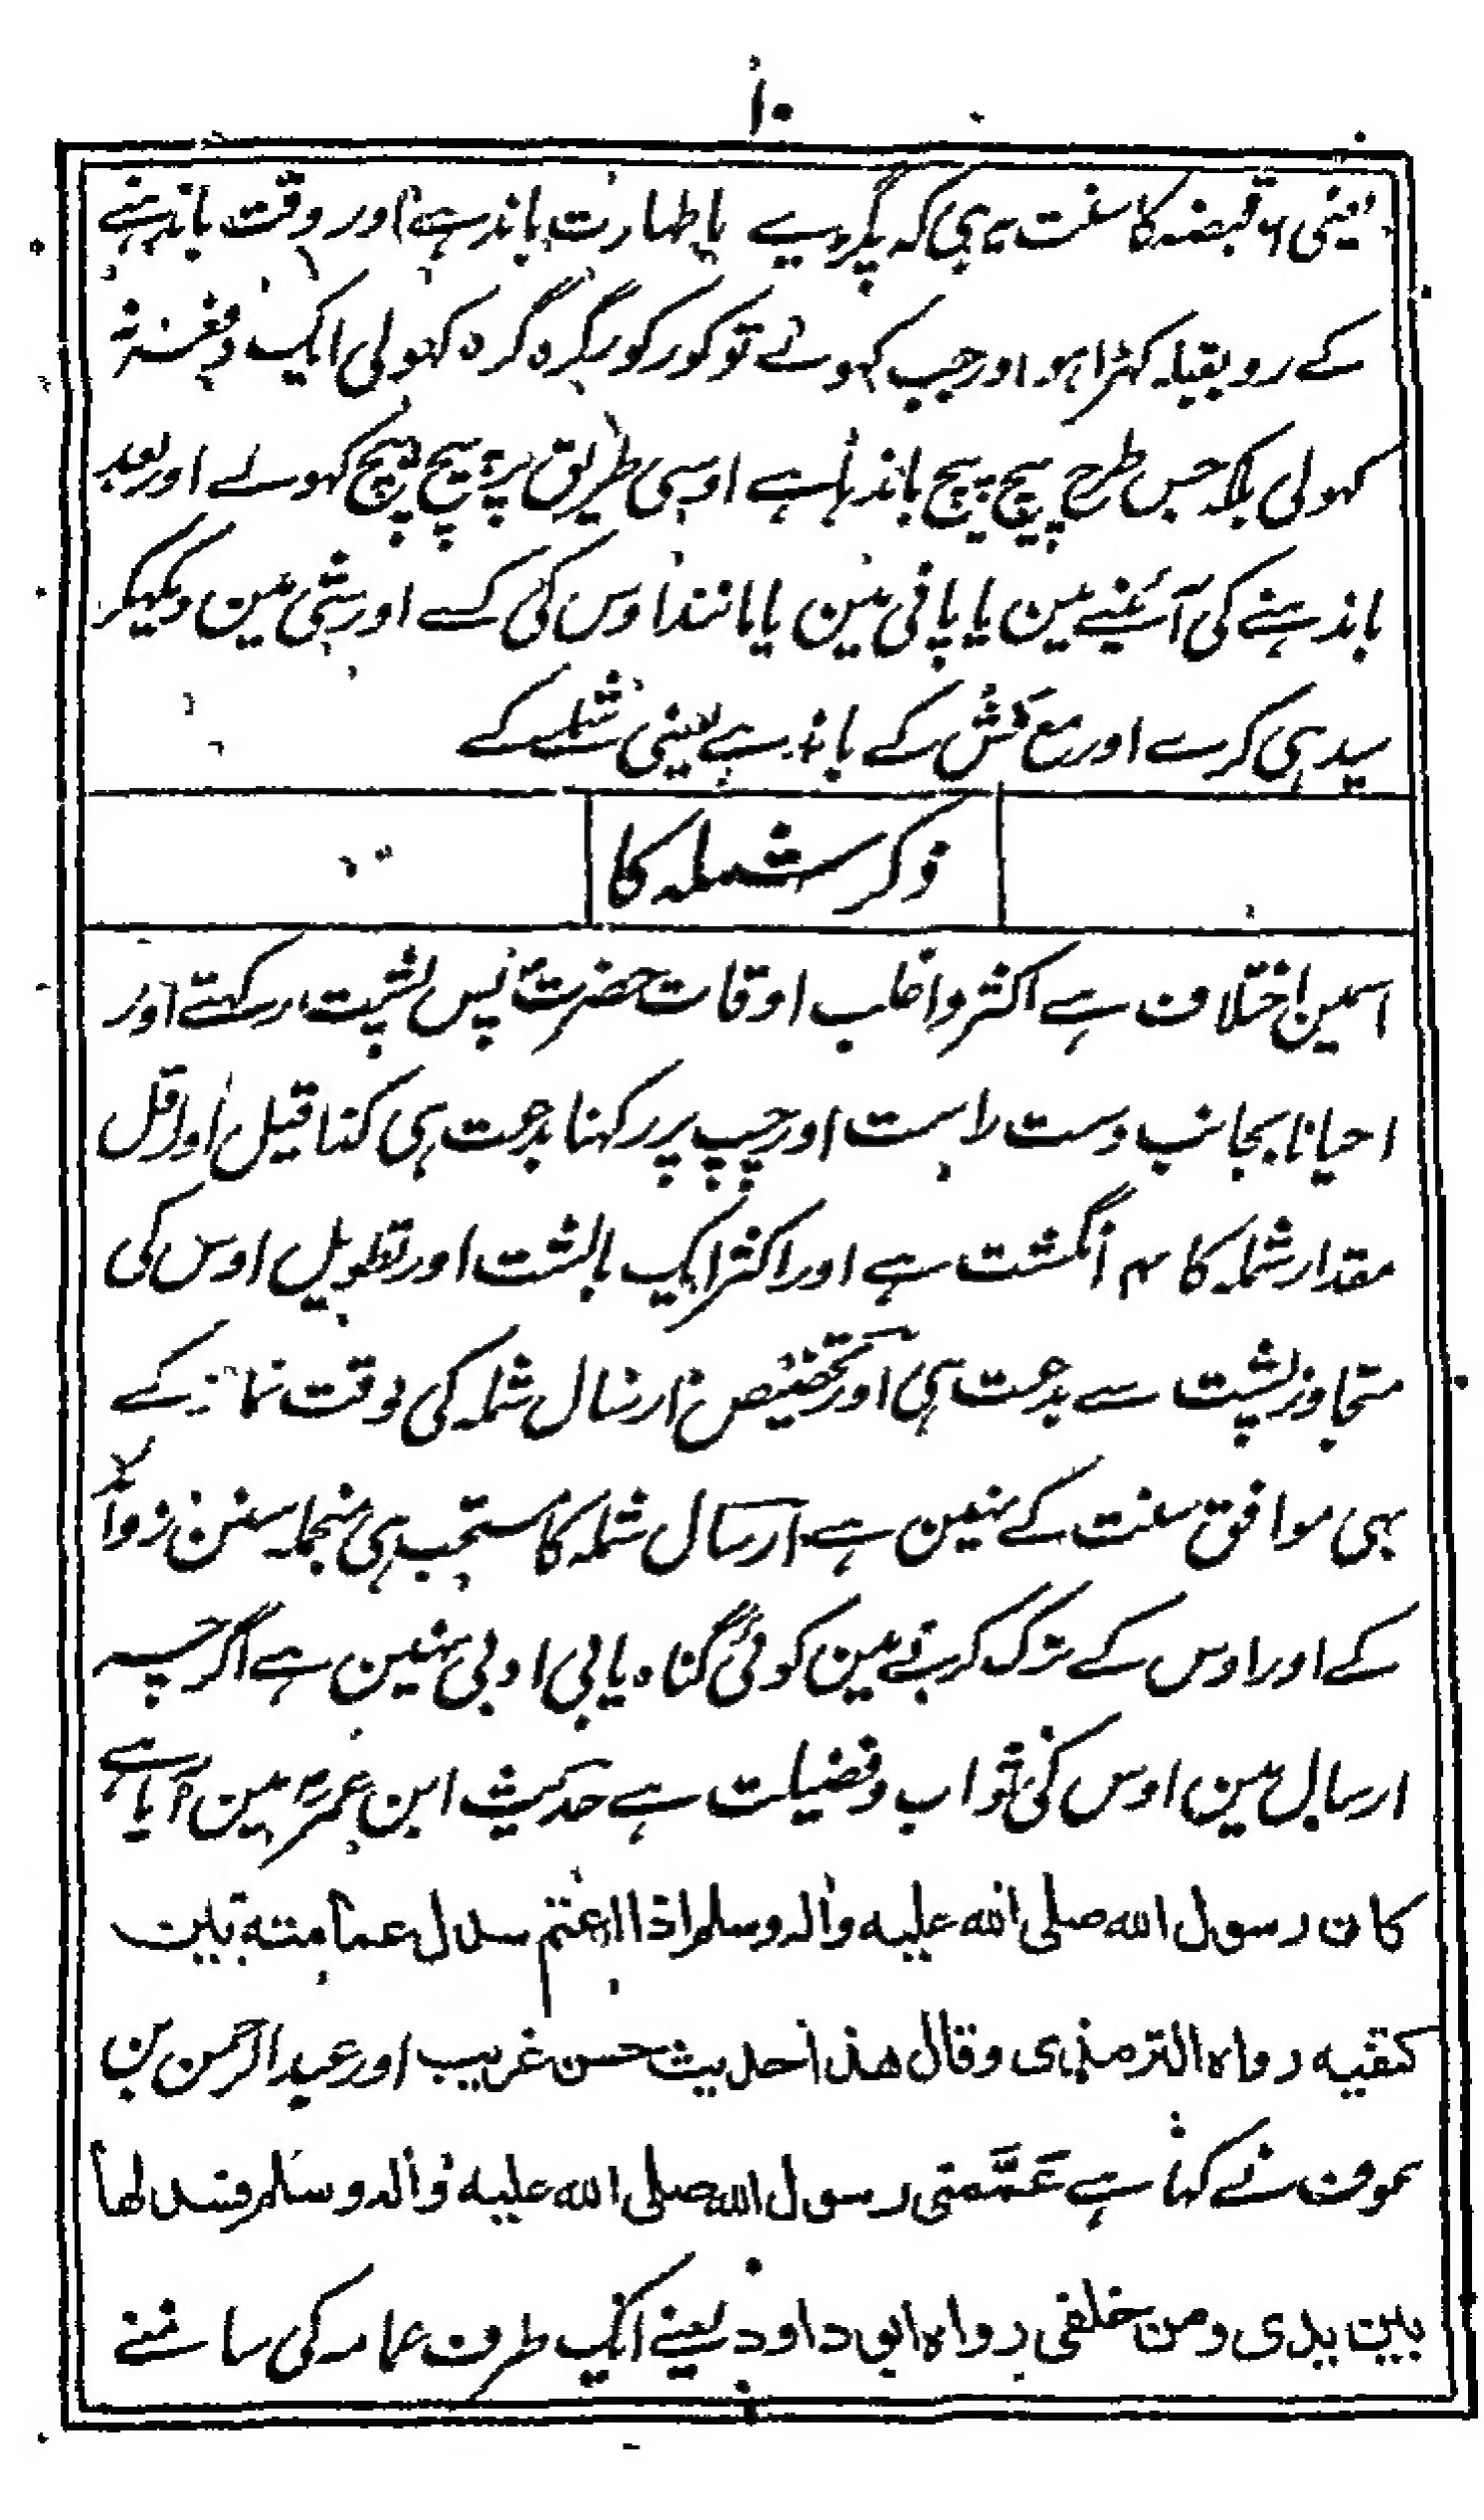 ۱۰
یعنی ۶ قبضہ کا سنت یہ ہی کہ پگڑیے باطہارت باندہے اور وقت باندہنے
کے روبقبلہ کہڑا ہو اور جب کہولے تو کور کور گرہ گرہ کہولی ایک دفعہ نہ
کہولی بلکہ جس طرح پیچ پیچ باندہا ہے اوسی طریق پر پیچ پیچ کہولے اور بعد
باندہنے کی آئینے مین یا پانی مین یا مانند اوس کی کے اور شی مین دیکہکر
سیدہی کرے اور مع کش کے باندہے یعنی شملے کے
ذکر شملہ کا
اسمین اختلاف ہے اکثر و اغلب اوقات حضرت پس پشت رکہتے اور
احیانا بجانب دست راست اور چپ پر رکہنا بدعت ہی کذا قیل اور اقل
مقدار شملہ کا ۴ انگشت ہے اور اکثر ایک بالشت اور تطویل اوس کی
متجاوز پشت سے بدعت ہی اور تخصیص ارسال شملہ کی وقت نماز کے
بہی موافق سنت کے نہین ہے ارسال شملہ کا مستحب ہی منجملہ سنن زوائد
کے اور اوس کے ترک کرنے مین کوئی گناہ یا بی ادبی نہین ہے اگرچہ
ارسال مین اوس کی ثواب و فضیلت ہے حدیث ابن عمر مین آیا ہے
کان رسول الله صلی الله علیه واله وسلم اذا اعتم سدل عمامته بین
کتفیه رواه الترمذی وقال هذا حدیث حسن غریب اور عبد الرحمن بن
عوف نے کہا ہے عَمَّمَنی رسول الله صلی الله علیه واله وسلم فسدلها
بین یدی ومن خلفی رواه ابو داود یعنے ایک طرف عمامہ کی سامنے